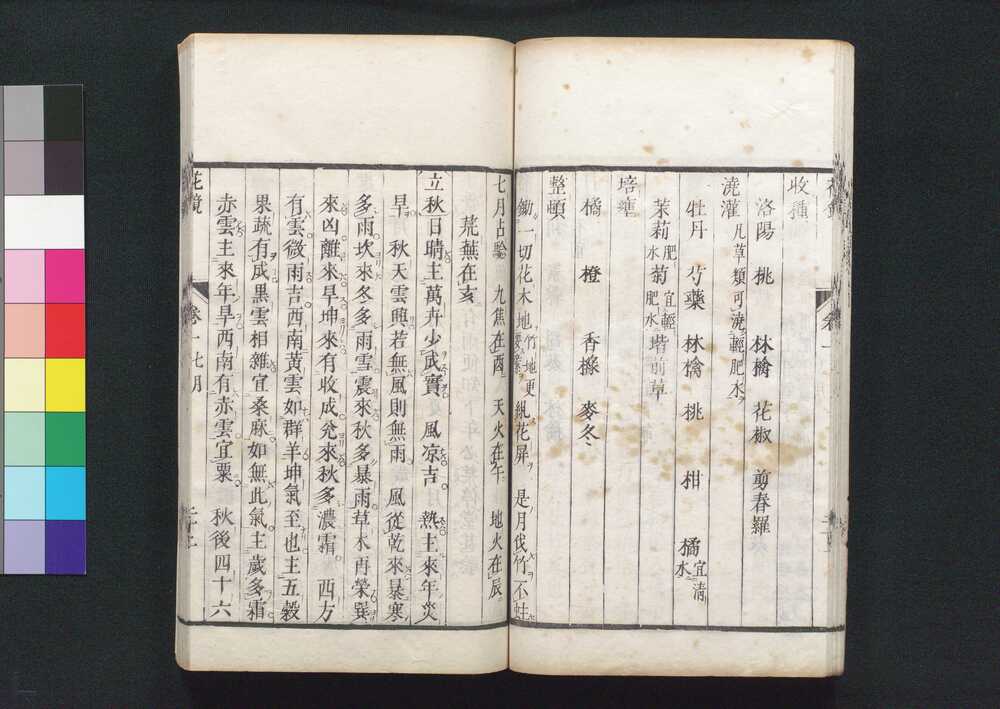 收種
洛陽 桃 林檎 花椒 剪春羅
澆灌 凡草類可澆輕肥水
牡丹 芍藥 林檎 桃 柑 橘 宜清水
茉莉 肥水 菊 宜輕肥水 堦前草
培壅
橘 橙 香櫞 麥冬
整頓
鋤一切花木地 竹地更要緊 縛花屏 是月伐竹不蛀
七月占驗 九焦在酉 天火在午 地火在辰
荒蕪在亥
立秋日晴主萬卉少成實 風凉吉 熱主來年災
旱 秋天雲興若無風則無雨 風從乾來暴寒
多雨坎來冬多雨雪震來秋多暴雨草木再榮巽
來凶離來旱坤來有收成兌來秋多濃霜 西方
有雲微雨吉西南黃雲如群羊坤氣至也主五穀
果蔬有成黑雲相雜宜桑麻如無此氣主歲多霜
赤雲主來年旱西南有赤雲宜粟 秋後四十六
花鏡 卷一 七月